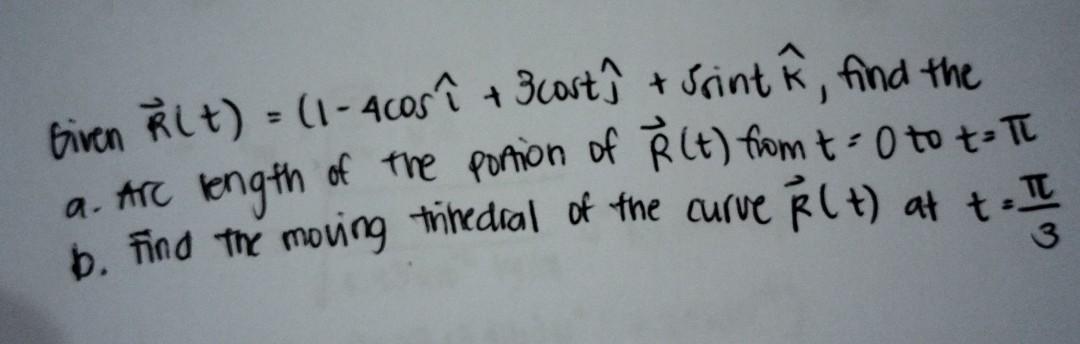 Given R⃗(t) = (1-4cos î + 3cost ĵ + 5sint k̂, find the
a. Arc length of the portion of R⃗(t) from t = 0 to t = π
b. Find the moving trihedral of the curve R⃗(t) at t = π/3